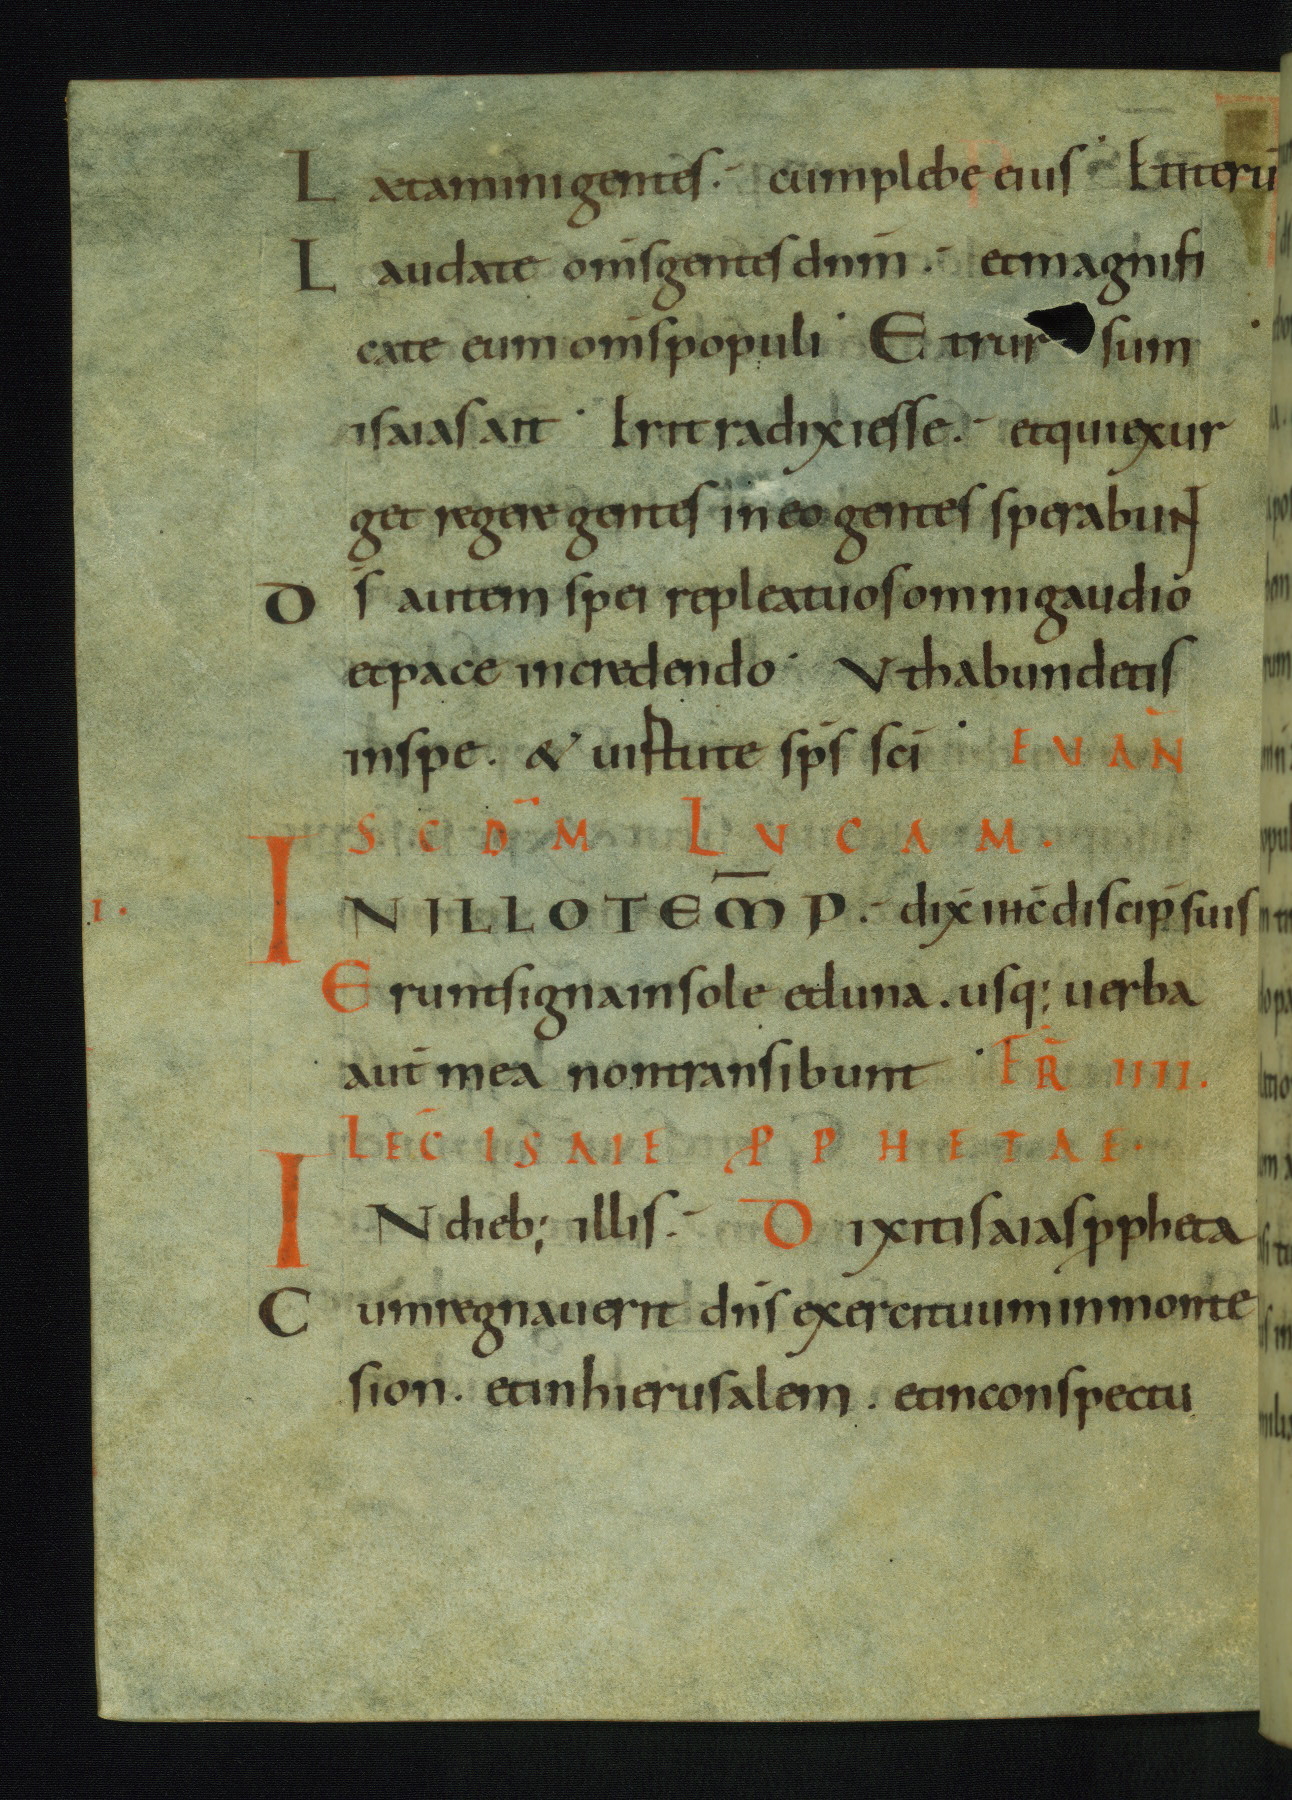 Laetamini gentes. cum plebe eius Et iterū
Laudate om̄s gentes dn̄m. et magnifi
cate eum om̄s populi Et rur sum
isaias ait Erit radix iesse. et qui exur
get regere gentes in eo gentes sperabunt
Ds̄ autem spei repleat uos omni gaudio
et pace in credendo Vt habundetis
in spe. & uirtute sp̄s sc̄i EVAN̄
SCD̄M LVCAM.
I. IN ILLO TEM̄P. dix̄ ih̄c discip̄ suis
Erunt signa in sole et luna. usq; uerba
aut̄ mea non transibunt FR̄ IIII.
LEC̄ ISAIE PPHETAE.
IN dieb; illis. Dixit isaias ppheta
Cum regnauerit dn̄s exercituum in monte
sion. et in hierusalem. et in conspectu